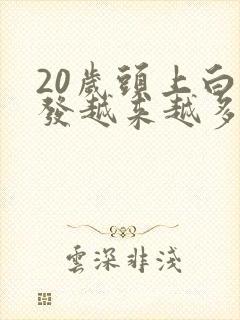 20歲頭上白
發越來越多
雲深非淺